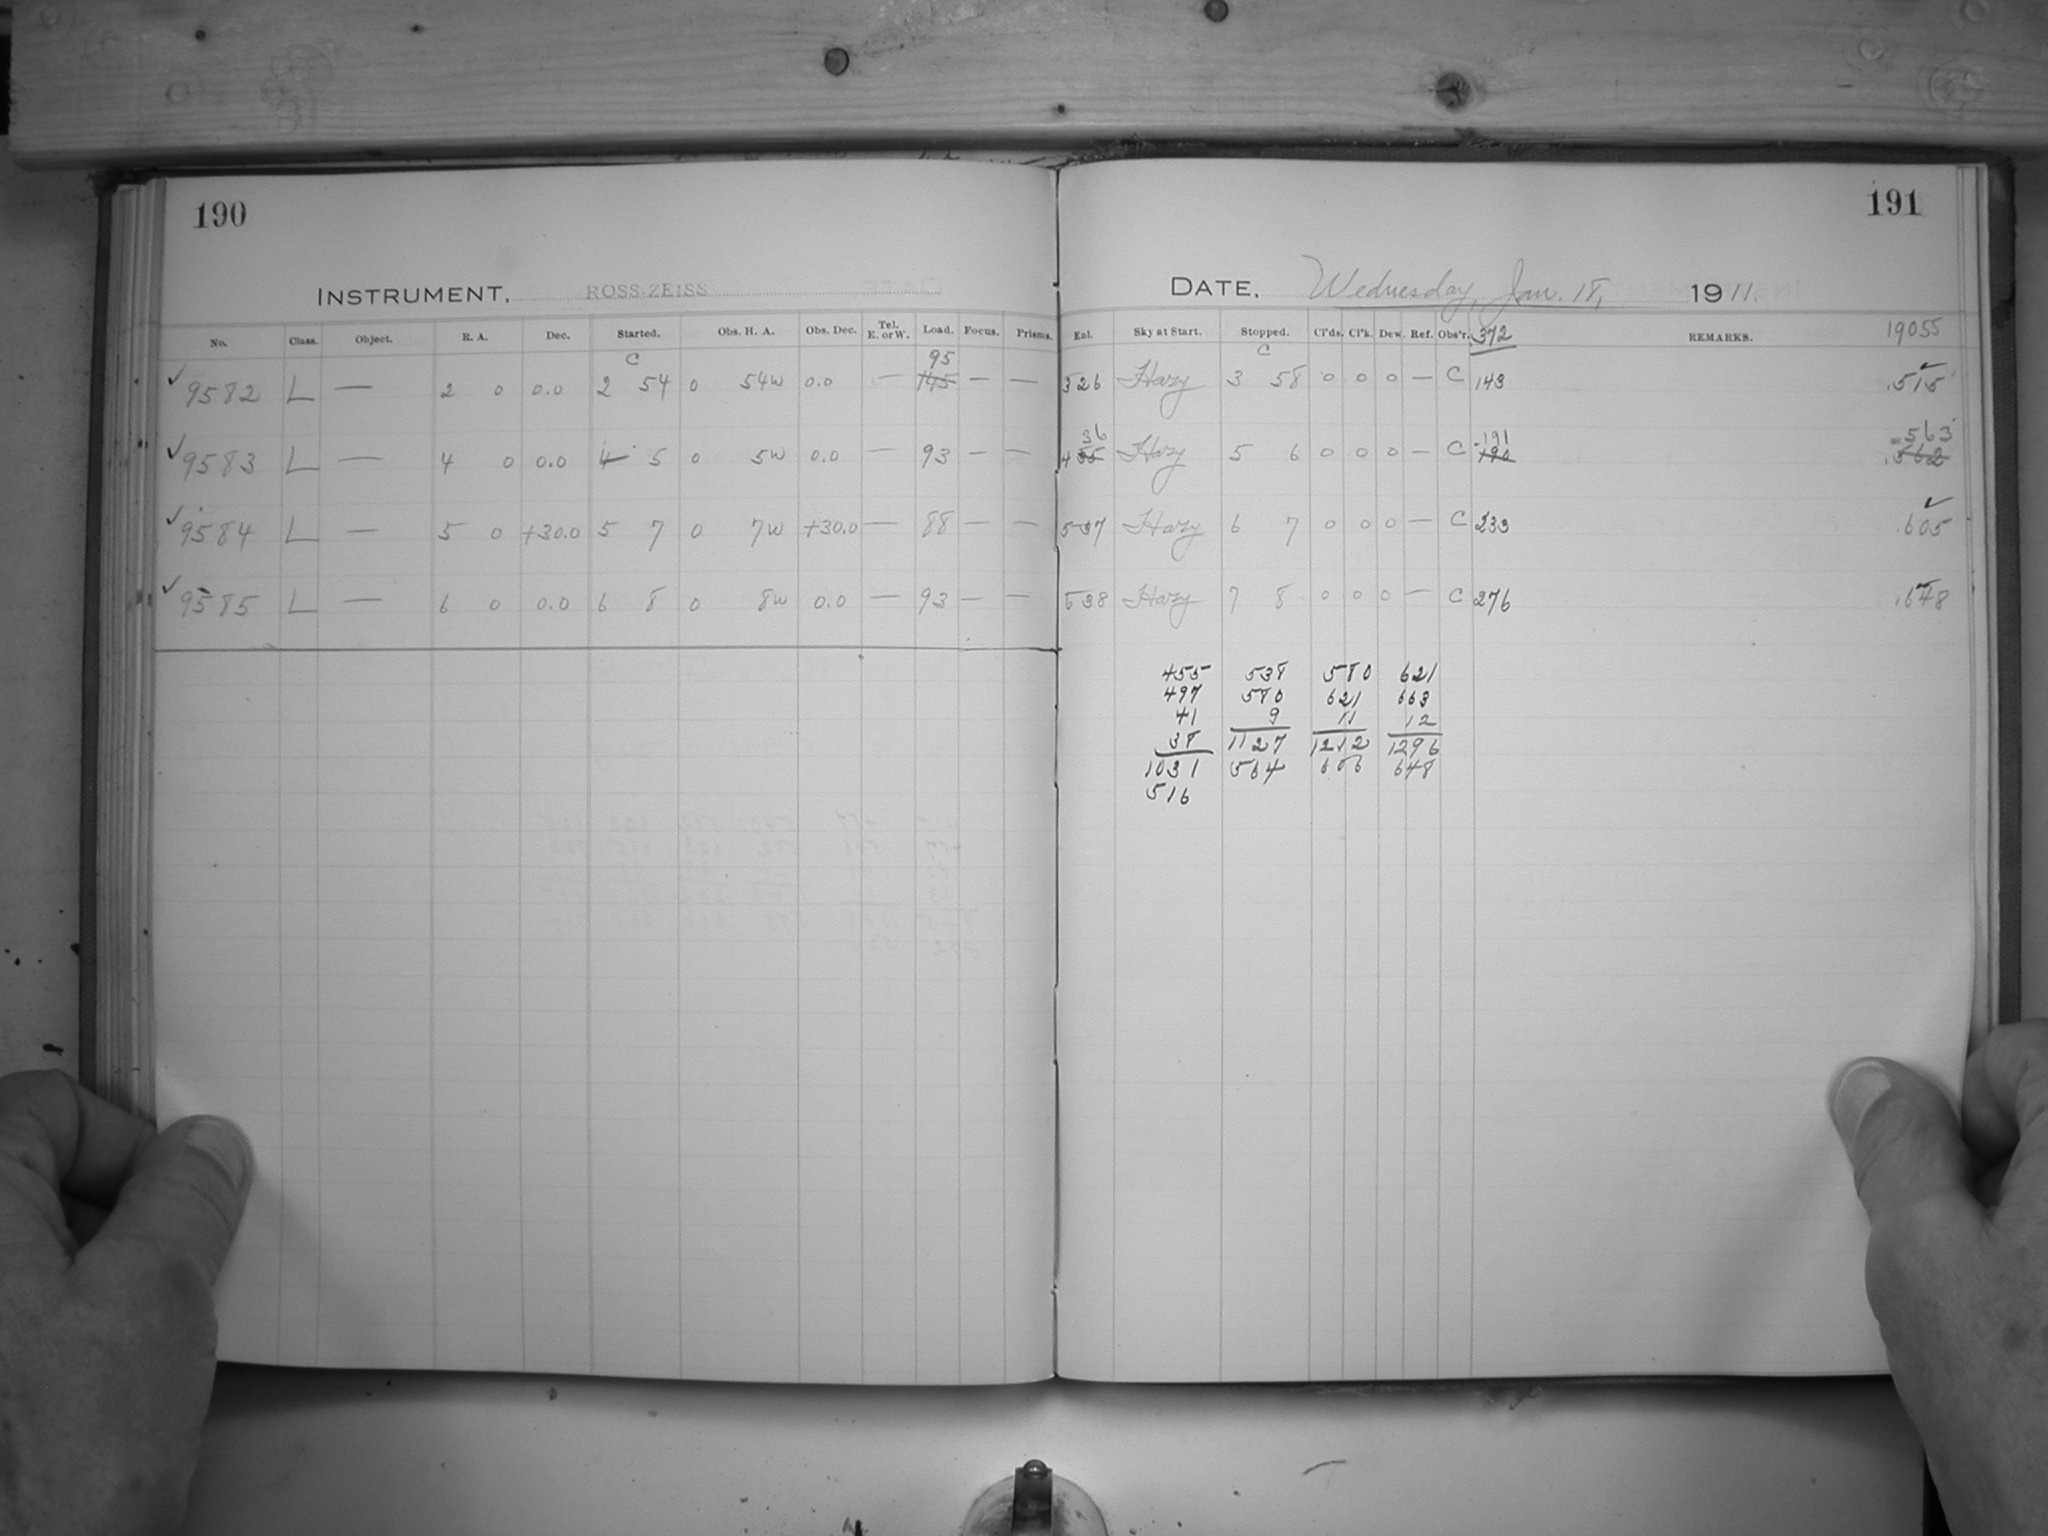 190
INSTRUMENT, ROSS-ZEISS
No. Class. Object. R. A. Dec. Started. Obs. H. A. Obs. Dec. Tel. E. or W. Load. Focus. Prisms.
C 95
✓ 9582 L — 2 0 0.0 2 54 0 54w 0.0 — 145 — —
✓ 9583 L — 4 0 0.0 4 5 0 5w 0.0 — 93 — —
✓ 9584 L — 5 0 +30.0 5 7 0 7w +30.0 — 88 — —
✓ 9585 L — 6 0 0.0 6 8 0 8w 0.0 — 93 — —
191
DATE, Wednesday, Jan. 18, 1911.
Sky at Start. Stopped. Cl'ds. Cl'k. Dew. Ref. Obs'r. 372 REMARKS. 19055
C
326 Hazy 3 58 0 0 0 — C 143 .515
36 191 .563
435 Hazy 5 6 0 0 0 — C 190 .562
537 Hazy 6 7 0 0 0 — C 233 .605
538 Hazy 7 8 0 0 0 — C 276 .648
455 538 580 621
497 580 621 663
41 9 11 12
38 1127 1212 1296
1031 564 606 648
516